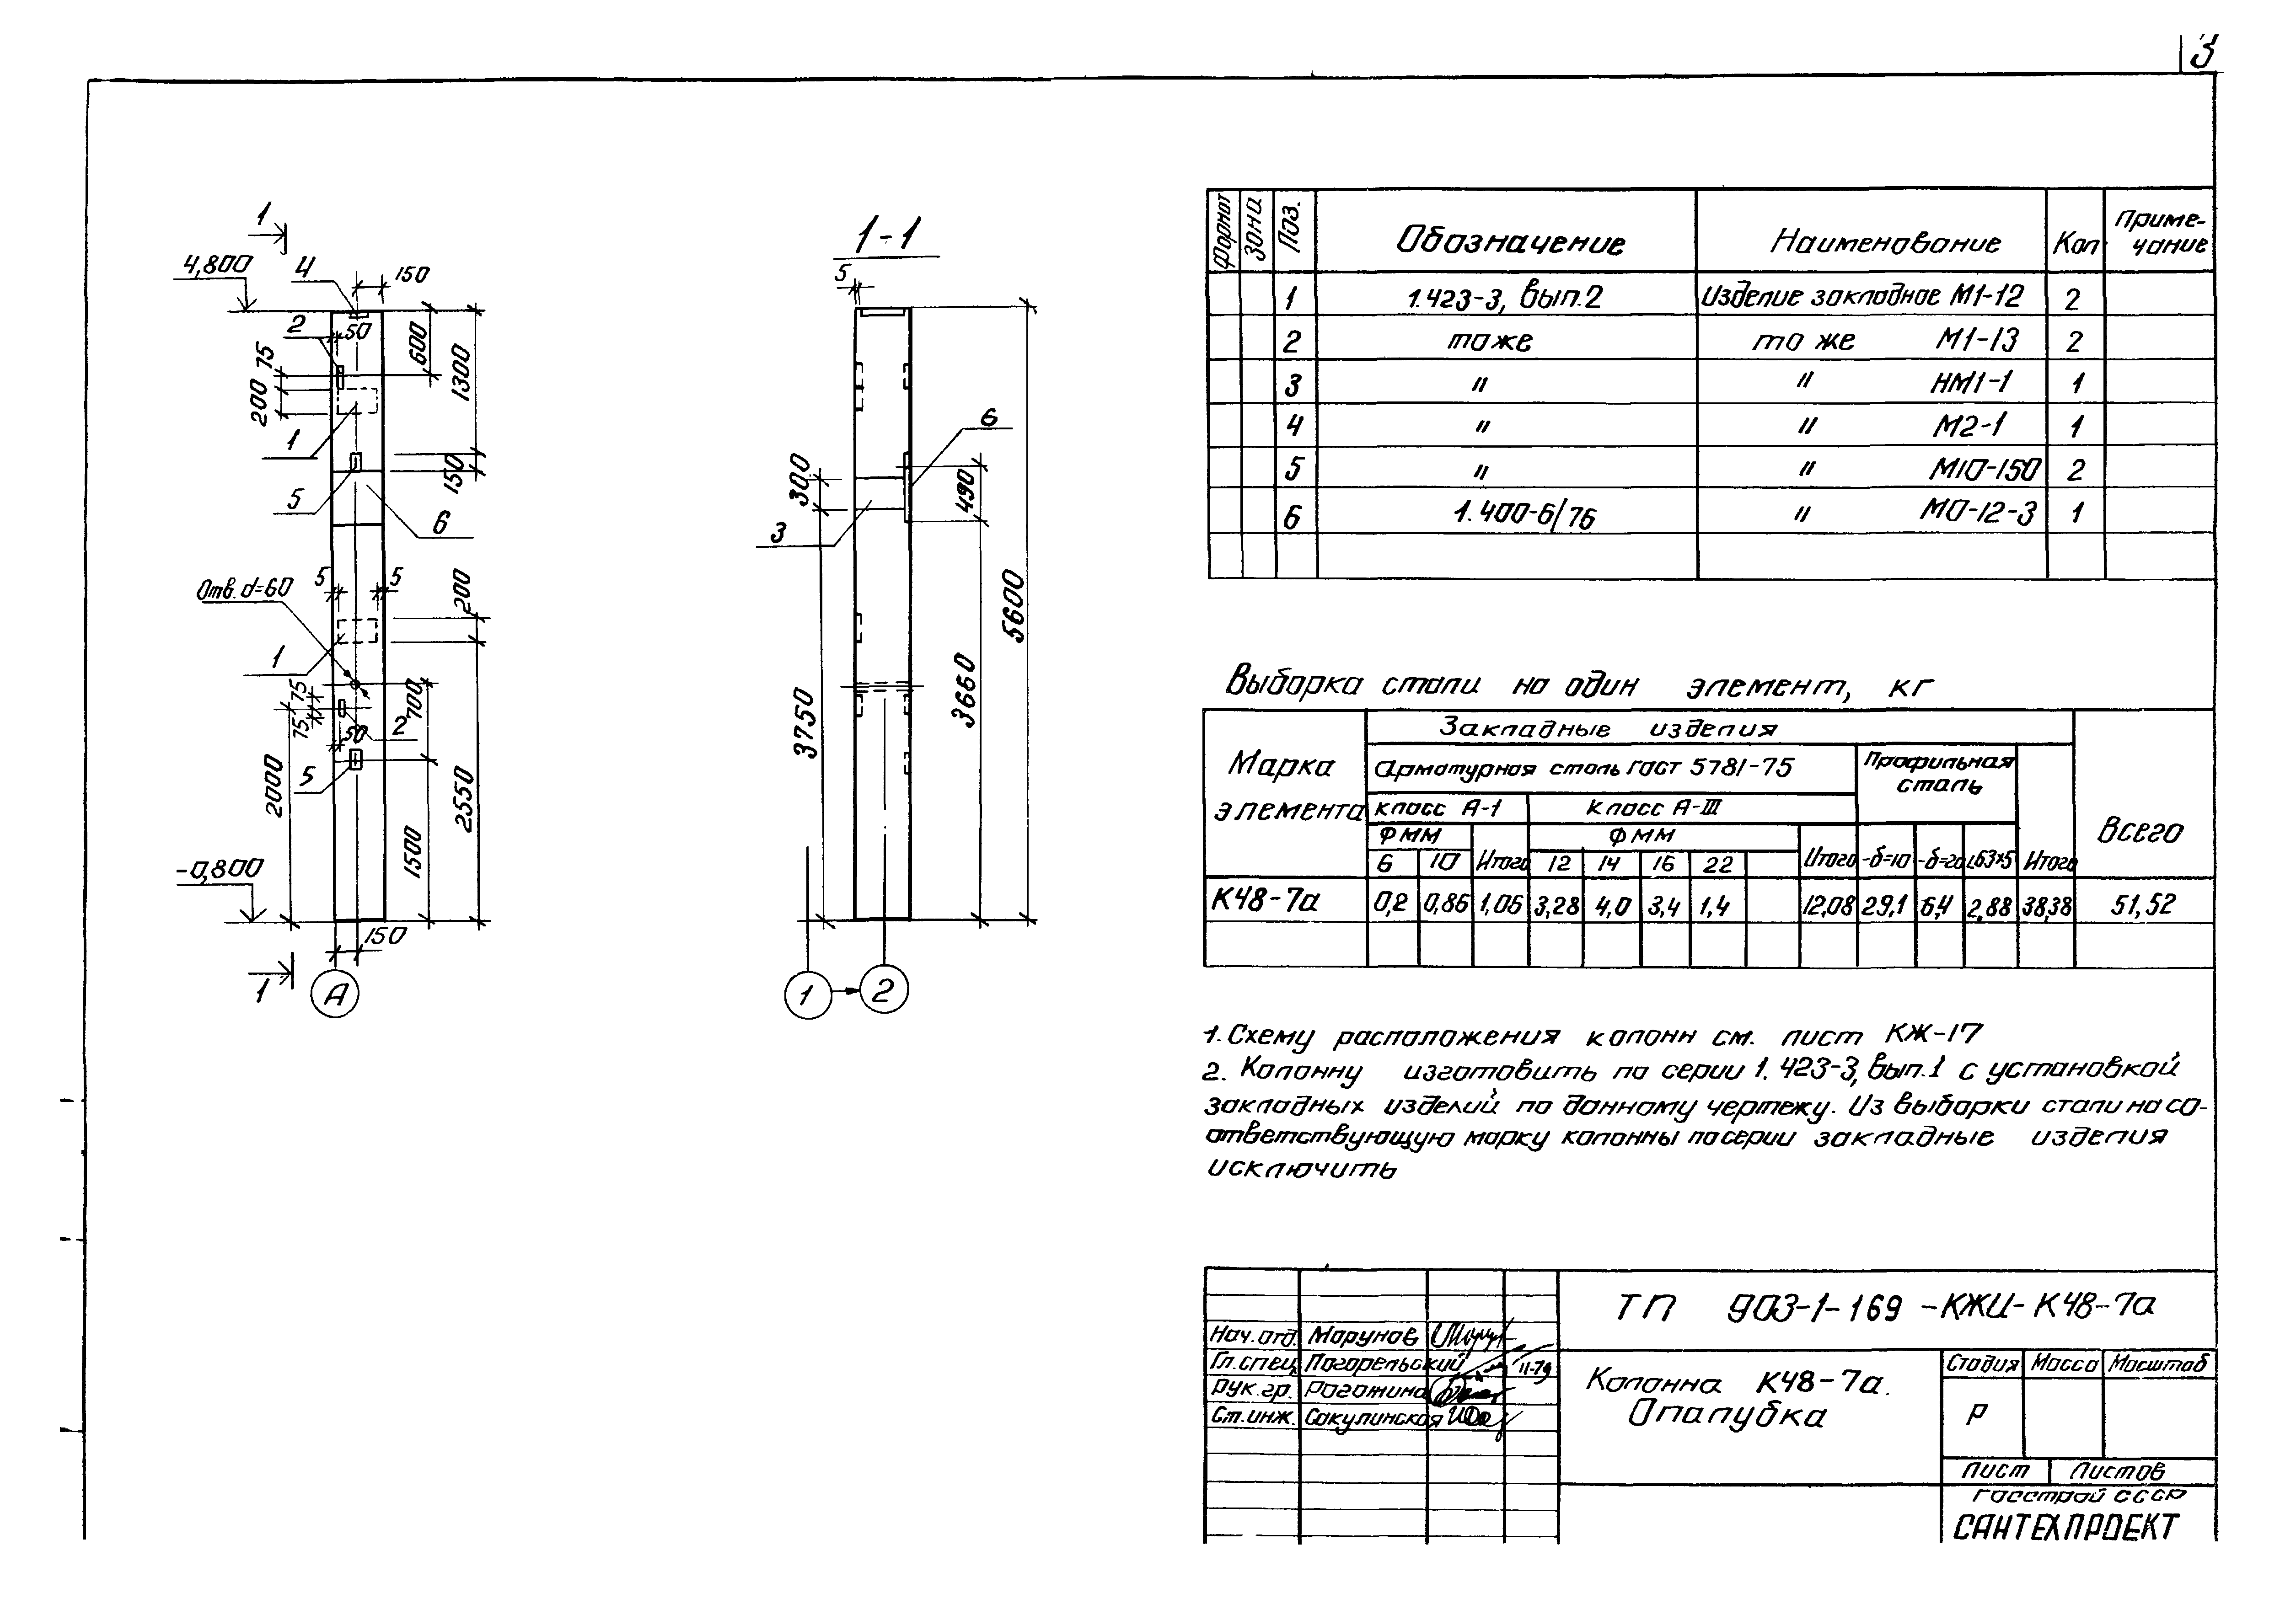 3
1
4,800
4
150
2
50
75
200
600
1300
1
5
150
6
5
5
Отв. d=60
200
1
75
75
50
2
700
5
2000
2550
1500
-0,800
150
1
А
1-1
5
6
300
490
3
5600
3750
3660
1
2
Формат Зона Поз. Обозначение Наименование Кол Приме-
чание
1 1.423-3, вып.2 Изделие закладное М1-12 2
2 то же то же М1-13 2
3 " " НМ1-1 1
4 " " М2-1 1
5 " " М10-150 2
6 1.400-6/76 " М0-12-3 1
Выборка стали на один элемент, кг
Марка
элемента
Закладные изделия
Всего
Арматурная сталь ГОСТ 5781-75
Профильная
сталь
класс А-1 класс А-III
Ф мм Ф мм
6 10 Итого 12 14 16 22 Итого -δ=10 -δ=20 L63×5 Итого
К48-7а 0,2 0,86 1,06 3,28 4,0 3,4 1,4 12,08 29,1 6,4 2,88 38,38 51,52
1. Схему расположения колонн см. лист КЖ-17
2. Колонну изготовить по серии 1.423-3, вып.1 с установкой
закладных изделий по данному чертежу. Из выборки стали на со-
ответствующую марку колонны по серии закладные изделия
исключить
ТП 903-1-169-КЖИ-К48-7а
Нач. отд. Марунов
Гл. спец. Погорельский 11-79
Рук. гр. Рогожина
Ст. инж. Сакулинская
Колонна К48-7а.
Опалубка
Стадия Масса Масштаб
Р
Лист Листов
Госстрой СССР
САНТЕХПРОЕКТ